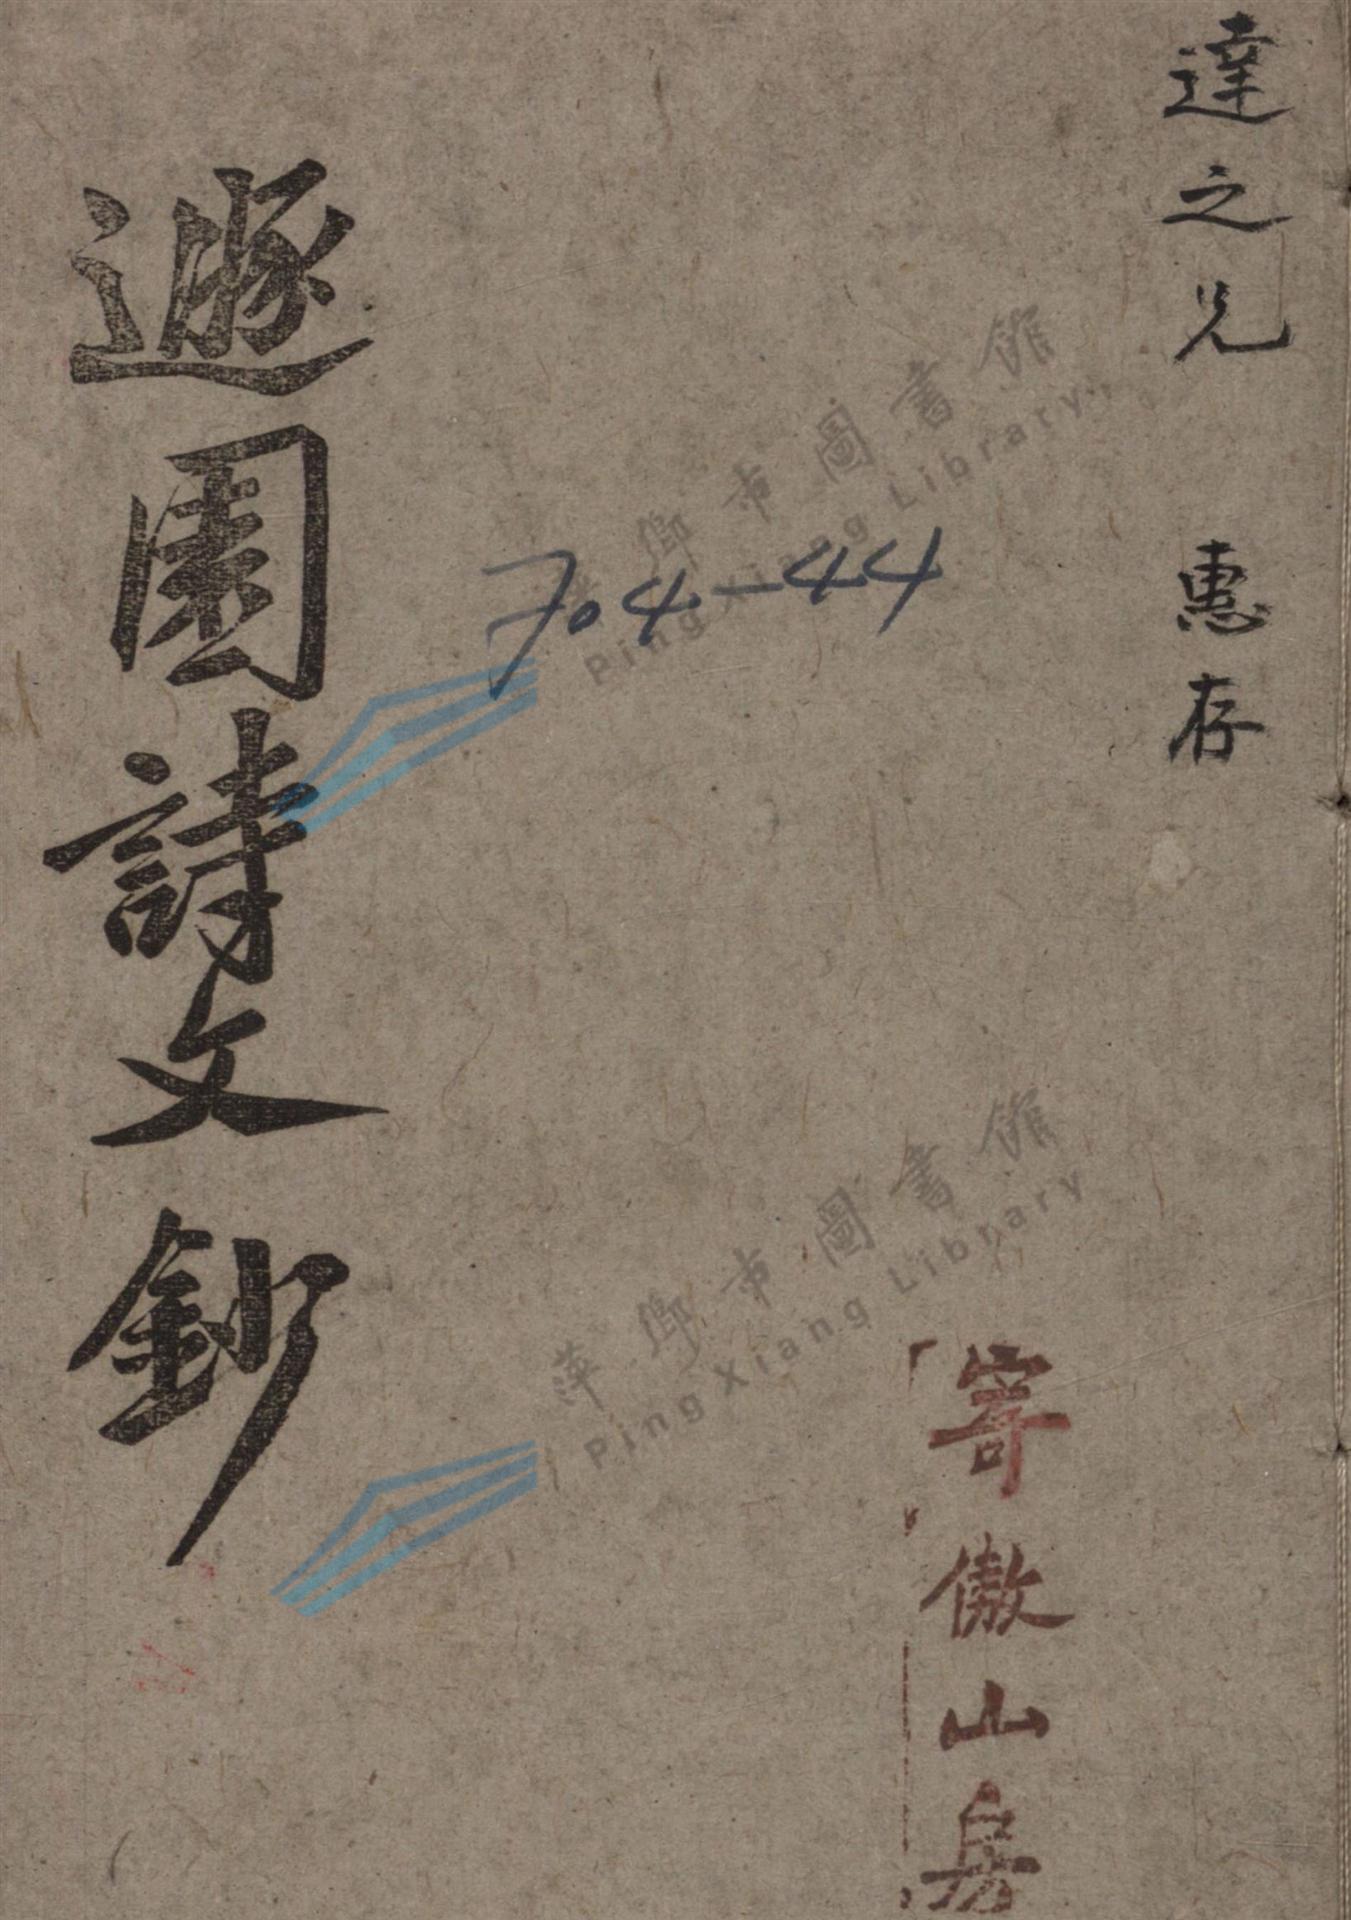 達之兄 惠存
遯園詩文鈔
704-44
寄傲山房
萍鄉市圖書館
PingXiang Library
萍鄉市圖書館
PingXiang Library